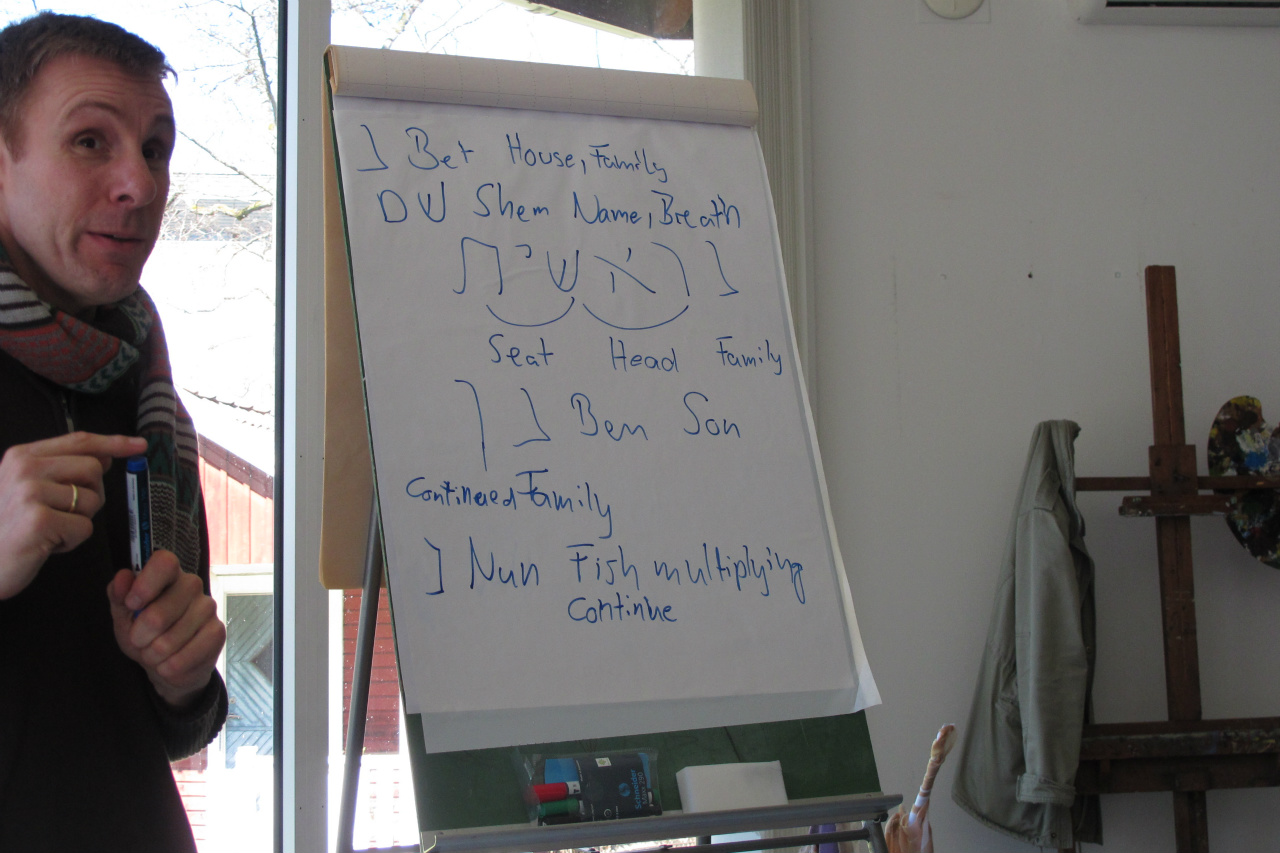 ב Bet House, Family
שם Shem Name, Breath
בראשית
Seat Head Family
בן Ben Son
Continued Family
נ Nun Fish multiplying
continue
Schneider